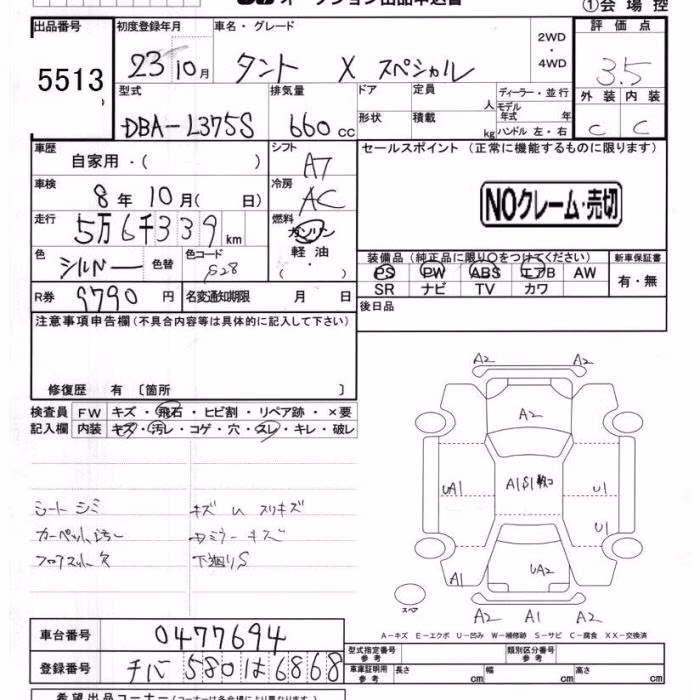 オークション出品申込書
①会場控
出品番号
5513
初度登録年月
車名・グレード
23 10月
タント X スペシャル
2WD
・
4WD
評価点
3.5
外装 内装
C C
型式
DBA-L375S
排気量
660 cc
ドア 定員 人
形状 積載 kg
ディーラー・並行
モデル年式 年
ハンドル 左・右
車歴
自家用・( )
シフト
A7
セールスポイント(正常に機能するものに限ります)
NOクレーム・売切
車検
8年10月( 日)
冷房
AC
走行
5万6千339 km
燃料
ガソリン
軽油
・( )
色
シルバー 色替
色コード
S28
装備品(純正品に限り○をつけてください)
PS PW ABS エアB AW
SR ナビ TV カワ
新車保証書
有・無
R券 9790 円
名変通知期限 月 日
後日品
注意事項申告欄(不具合内容等は具体的に記入して下さい)
修復歴 有〔箇所 〕
検査員
記入欄
FW キズ・飛石・ヒビ割・リペア跡・×要
内装 キズ・汚レ・コゲ・穴・スレ・キレ・破レ
シートシミ
カーペット汚レ
フロアマット欠
キズ スリキズ
ミラーキズ
下廻りS
A2 A2
A2
UA1 A1S1 U1
U1
A1 UA2
スペア
A2 A1 A2
A-キズ E-エクボ U-凹み W-補修跡 S-サビ C-腐食 XX-交換済
車台番号 0477694
登録番号 チバ 580 は 6868
型式指定番号
参考
類別区分番号
参考
車庫証明用
参考
長さ cm 幅 cm 高さ cm
希望出品コーナー(コーナーは各会場により異なります)